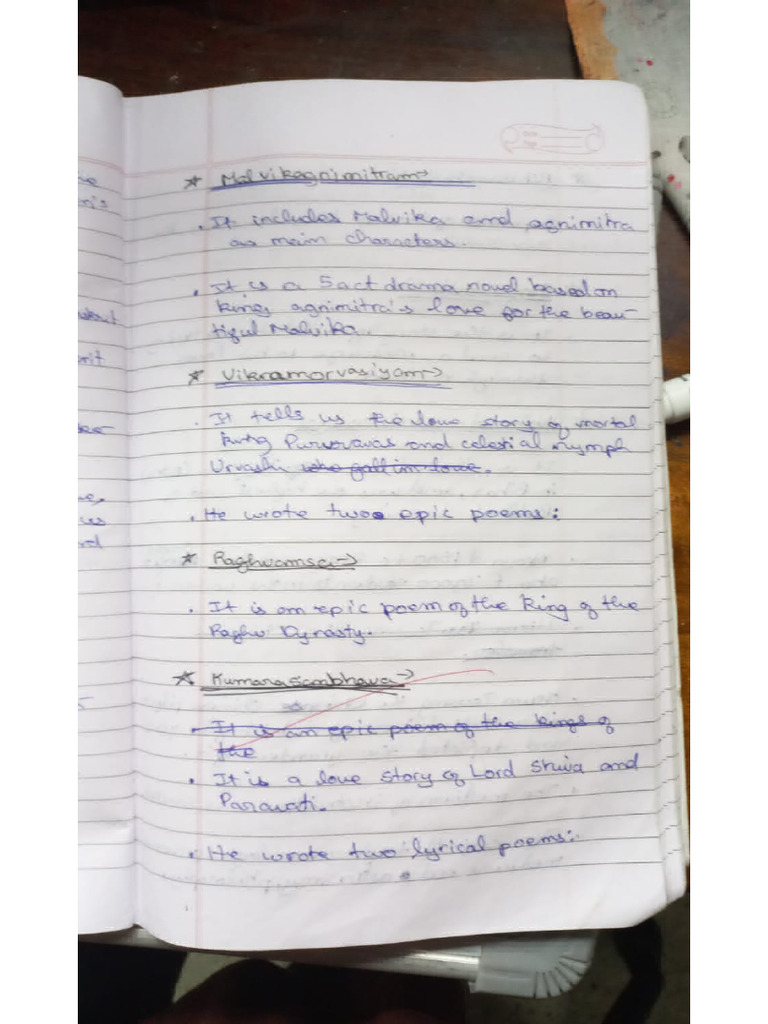 * Malvikagnimitram→
. It includes Malvika and agnimitra
as main characters.
. It is a 5 act drama novel based on
king agnimitra's love for the beau-
tiful Malvika
* Vikramorvasiyam→
. It tells us the love story of mortal
king Pururavas and celestial nymph
Urvashi who fall in love.
. He wrote two epic poems:
* Raghwamsa→
. It is an epic poem of the King of the
Raghu Dynasty.
* Kumarasambhava→
. It is an epic poem of the kings of
the
. It is a love story of Lord Shiva and
Paravati.
. He wrote two lyrical poems: